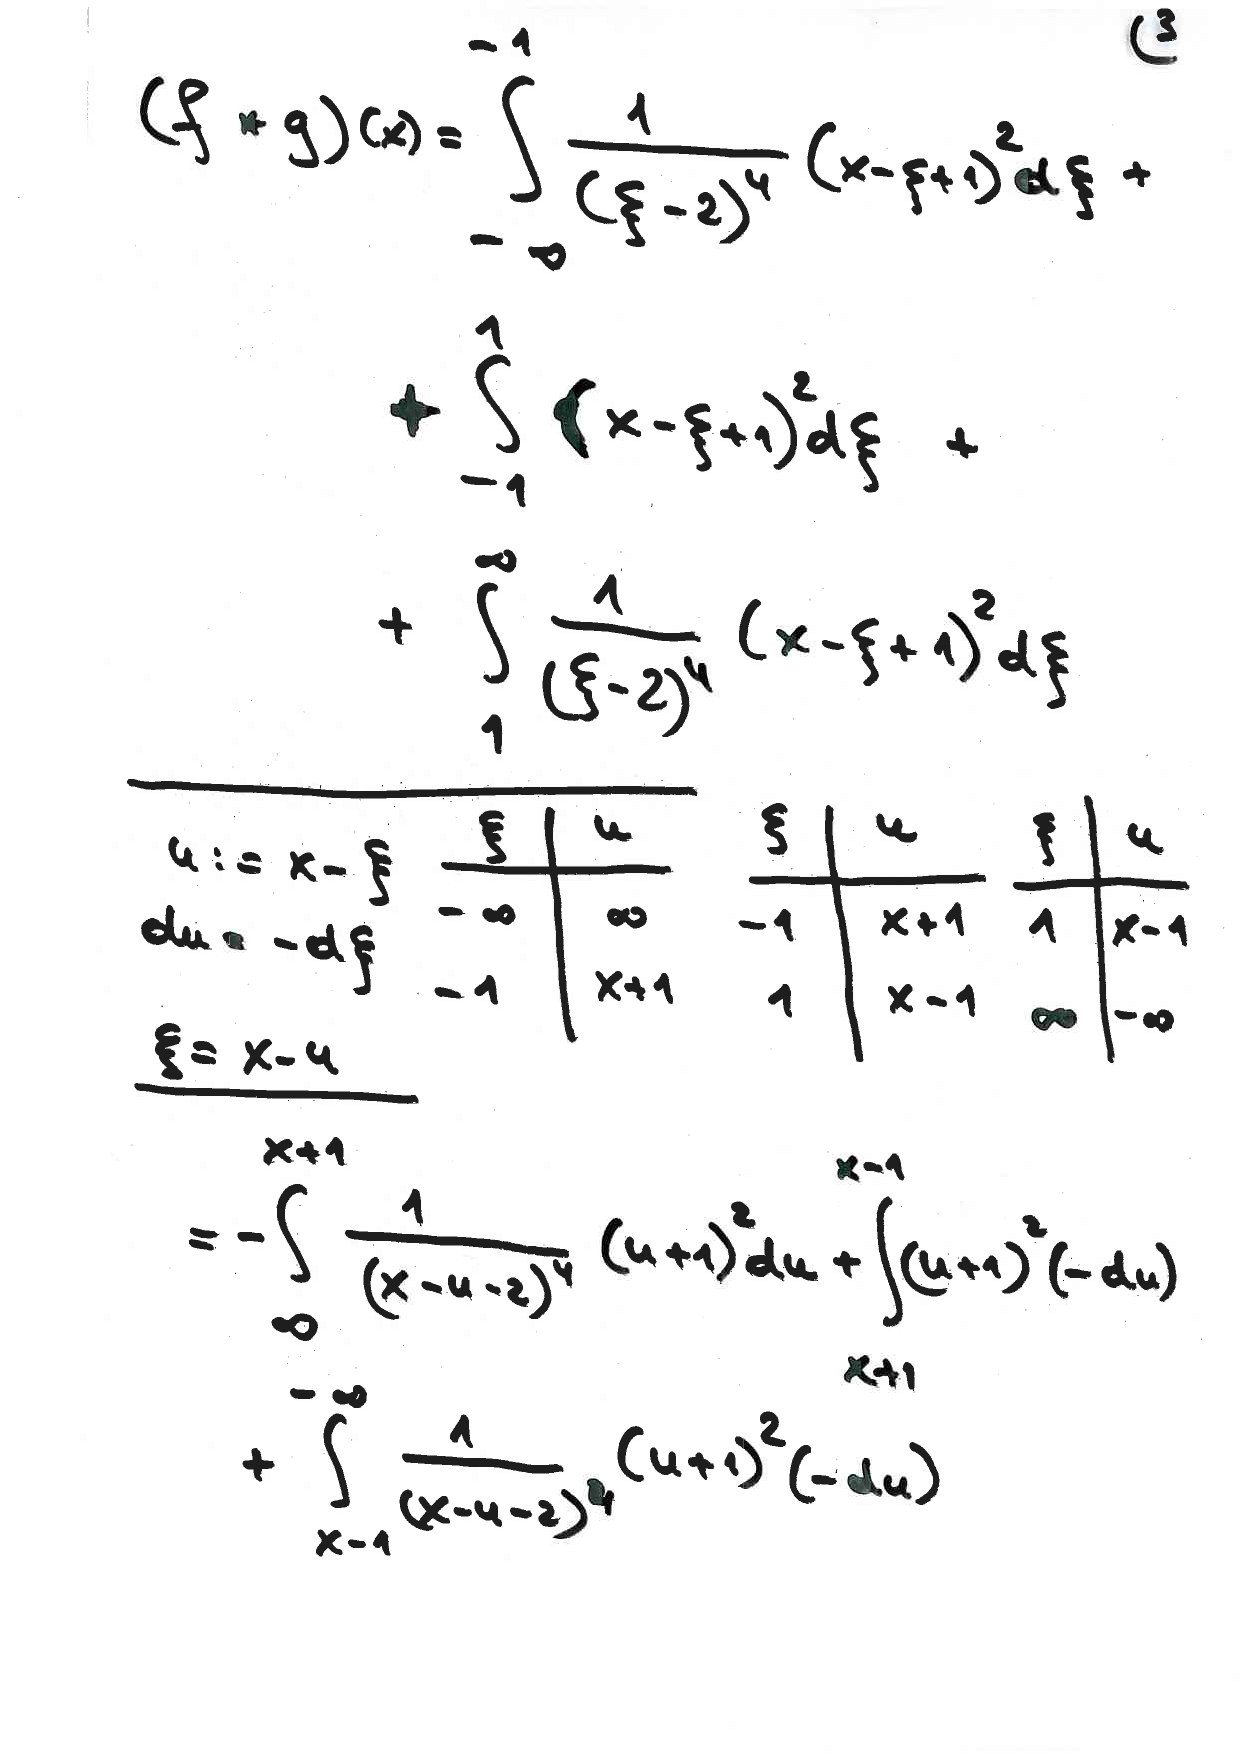 (3
(f * g)(x) = ∫_{-∞}^{-1} 1/(ξ-2)^4 (x-ξ+1)^2 dξ +
+ ∫_{-1}^{1} (x-ξ+1)^2 dξ +
+ ∫_{1}^{∞} 1/(ξ-2)^4 (x-ξ+1)^2 dξ
u := x-ξ   ξ | u   ξ | u   ξ | u
du = -dξ   -∞ | ∞   -1 | x+1   1 | x-1
ξ = x-u   -1 | x+1   1 | x-1   ∞ | -∞
= -∫_{∞}^{x+1} 1/(x-u-2)^4 (u+1)^2 du + ∫_{x+1}^{x-1} (u+1)^2 (-du)
+ ∫_{x-1}^{-∞} 1/(x-u-2)^4 (u+1)^2 (-du)